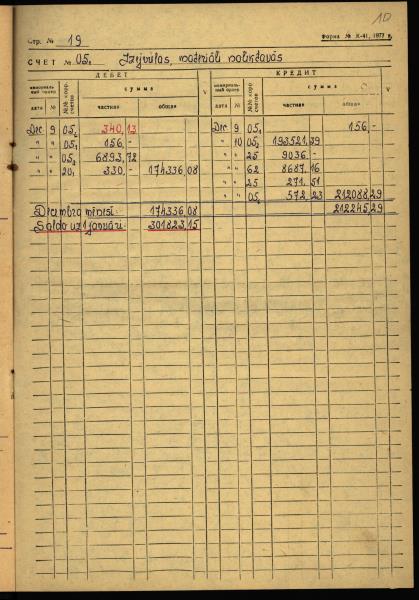 10
Стр. № 19
Форма № К-41, 1977 г.
СЧЕТ № 05₂ Izejvielas, materiāli noliktavās
ДЕБЕТ КРЕДИТ
мемориальный ордер №№ корр. счетов сумма V мемориальный ордер №№ корр. счетов сумма V
дата № частная общая дата № частная общая
Dec 9 05₂ 340,13 Dec 9 05₁ 156,-
" " 05₁ 156,- " 10 05₂ 193521,39
" " 05₂ 6893,72 " " 25 9036,-
" " 20₁ 330,- 174336,08 " " 62 8687,16
" " 25 271,51
" " 05₂ 572,23 212088,29
Decembra mēnesī: 174336,08 212245,29
Saldo uz 1 janvāri: 301823,15